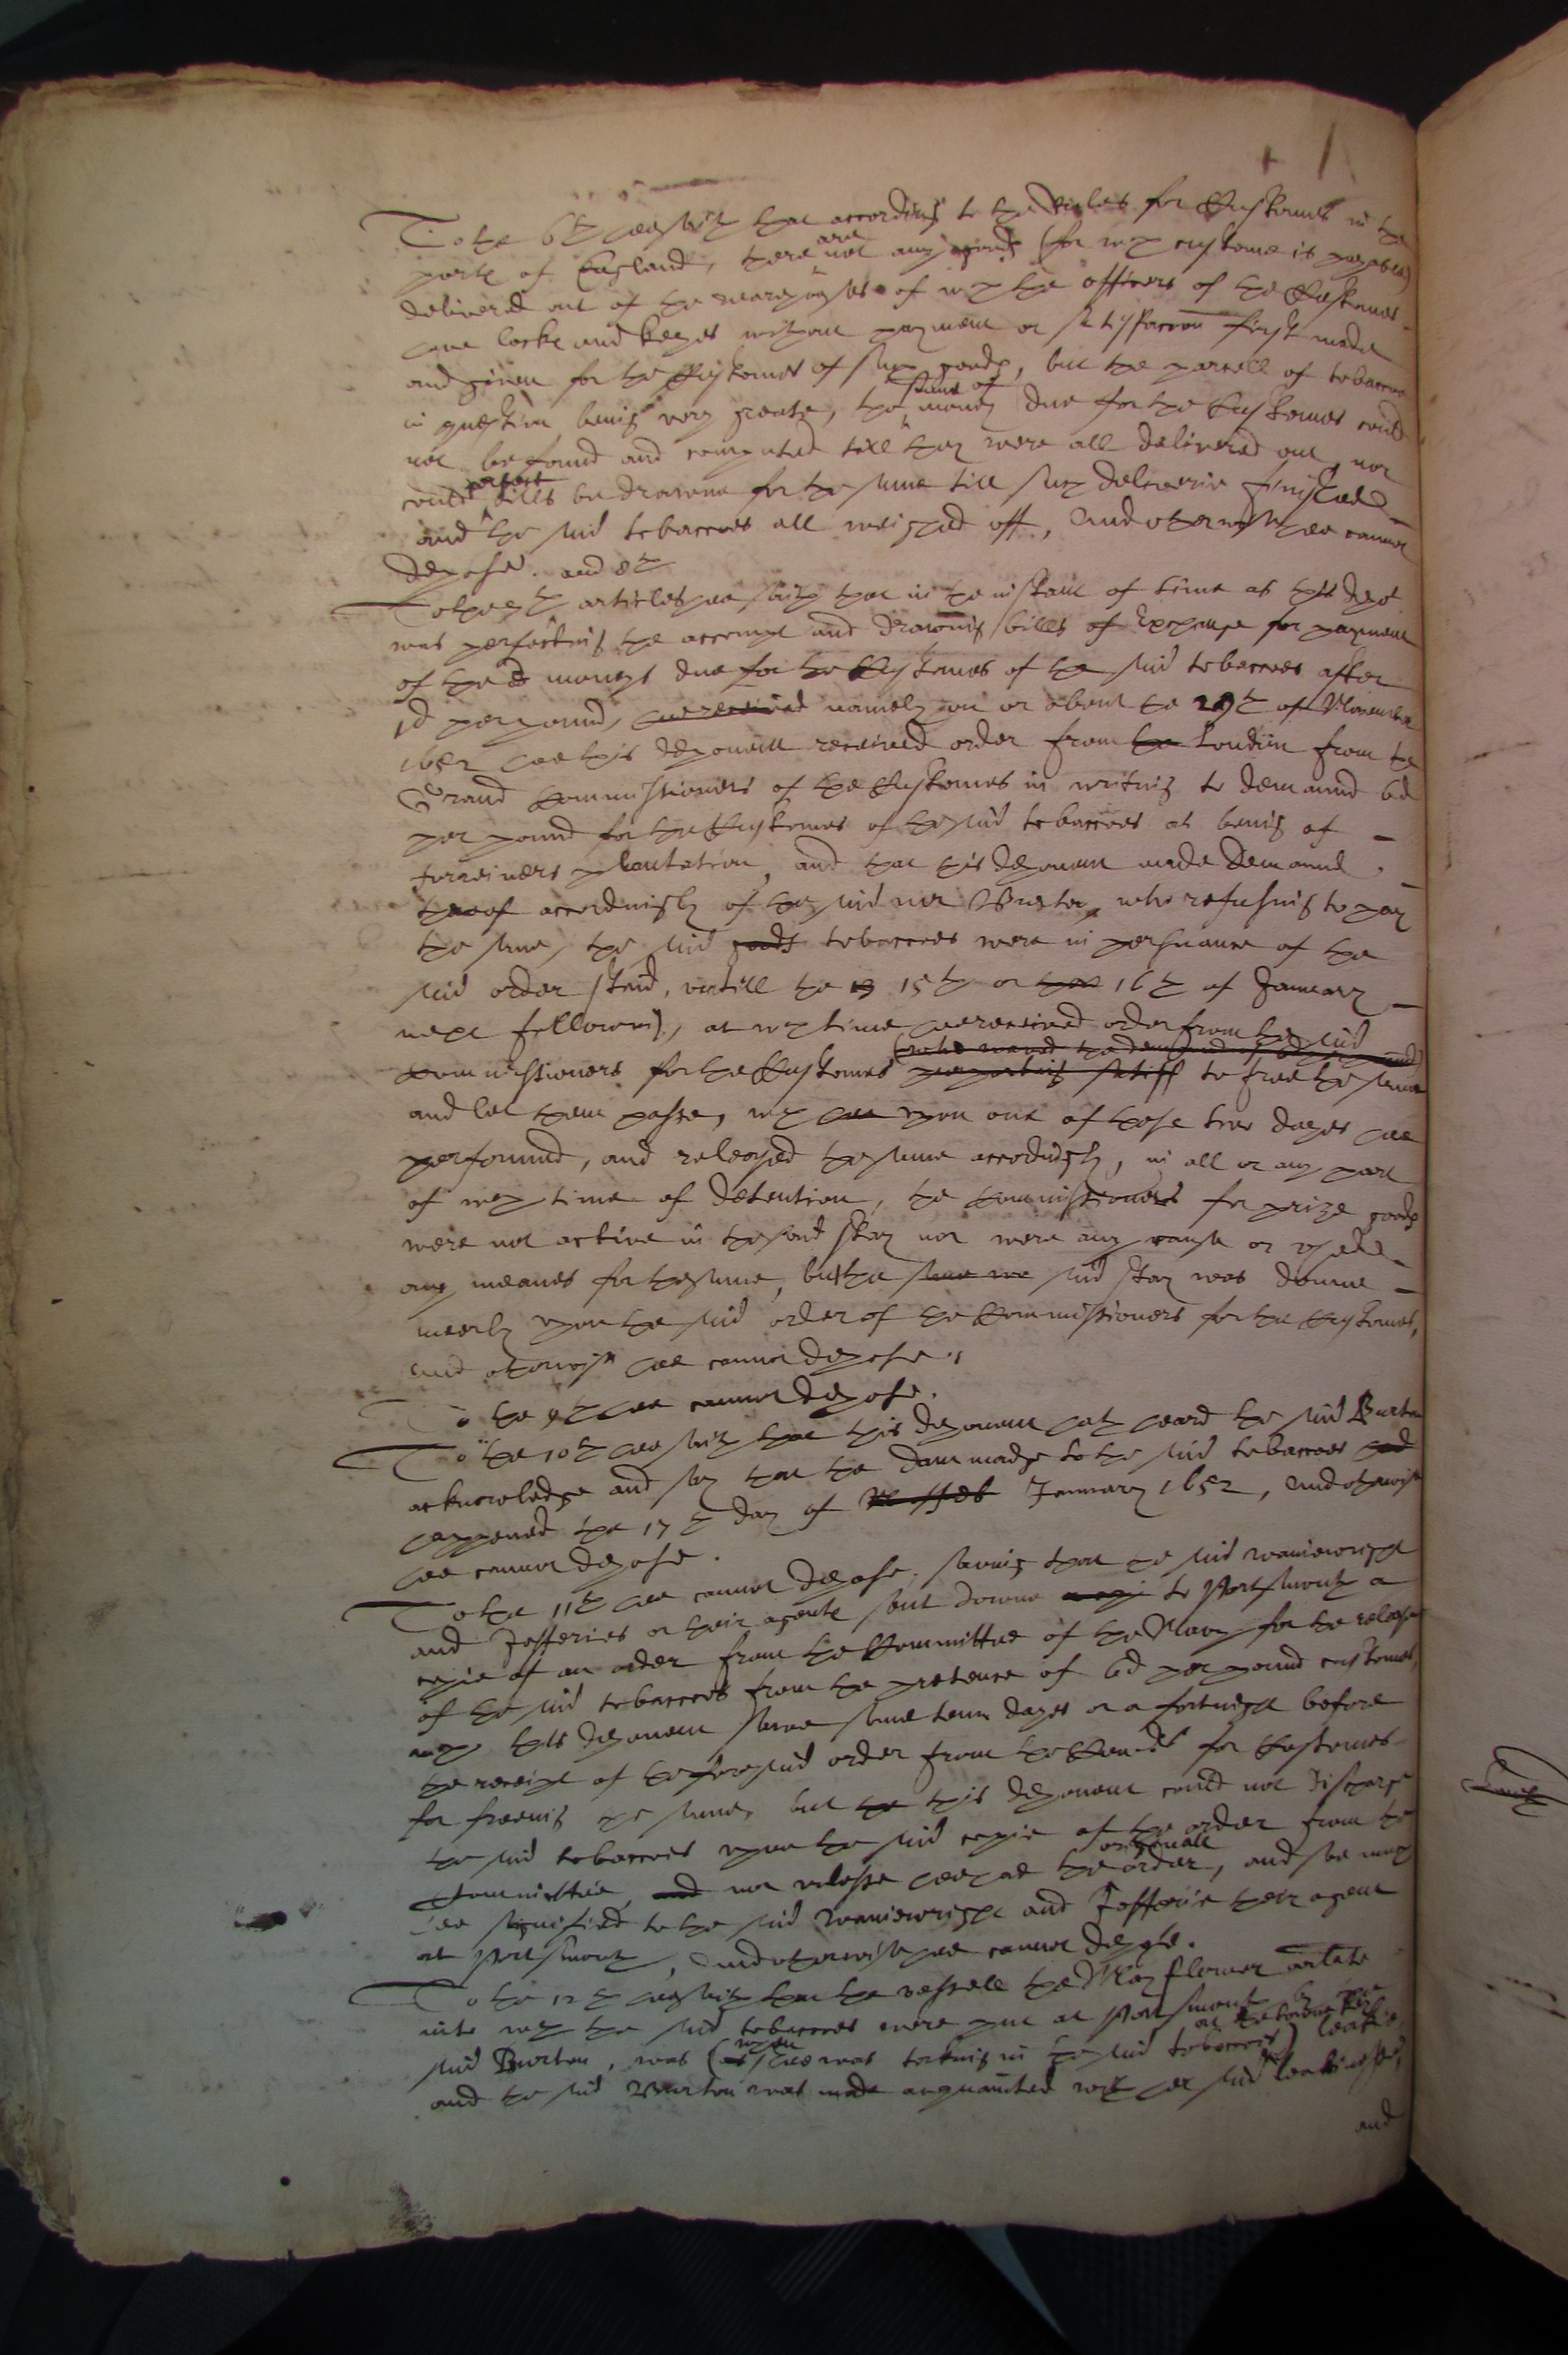 To the 6th hee saith that according to the Rules for Customes in the
ports of England, there are not any goods (for wch custome is payable)
delivered out of the warehouses of wch the officers of the Customes
have locks and keyes without payment or satisfaccon first made
and given for the Customes of such goods, but the parcell of tobaccoe
in question being very greate, the summe of money due for the Customes could
not be found and computed till they were all delivered out, nor
could perfect bills be drawne for the same till such deliverie finished
and the said tobaccoes all weighed off, And otherwise hee cannot
depose. and 8th
To the 7th articles hee saith that in the instant of time as this depot
was perfecting the accompt and drawing bills of Exchange for payment
of the moneys due for the Customes of the said tobaccoes after
1d per pound, hee received namely on or about the 29th of November
1652 hee this deponent received order from the London from the
Grand Commissioners of the Customes in writing to demaund 6d
per pound for the Customes of the said tobaccoes as being of
forreiners plantation, and that this deponent made demaund
thereof accordingly of the said mr Burton, who refusing to pay
the same, the said goods tobaccoes were in persuance of the
said order staid, untill the 15th or the 16th of January
next following, at wch time hee received order from the said
(who waved the demand of 6d per pound)
Commissioners for the Customes to free the same
and let them passe, wch hee upon one of those two dayes hee
performed, and released the same accordingly, in all or any part
of wch time of detention, the Commissioners for prize goods
were not active in the said stay nor were any cause or used
any meanes for the same, but the same we said stay was donne
meerly upon the said order of the Commissioners for the Customes,
And otherwise hee cannot depose.
To the 9th hee cannot depose.
To the 10th hee saith that this deponent hath heard the said Burton
acknowledge and say that the dammadge to the said tobaccoes had
happened the 17th day of January 1652, And otherwise
hee cannot depose.
To the 11th hee cannot depose, saving that the said Wainewright
and Jefferies or their agents sent downe a copie to Portsmouth a
copie of an order from the Committee of the Navy for the release
of the said tobaccoes from the pretence of 6d per pound customes,
wch this deponent sawe some tenn dayes or a fortnight before
the receipt of the foresaid order from the Commrs for Customes
for freeing the same, but the this deponent could not discharge
the said tobaccoes upon the said copie of the order from the
Committee, and not unlesse hee had the originall order, and soe much
hee signified to the said Wainewright and Jefferie their agent
at Portsmouth, And otherwise hee cannot depose.
To the 12th hee saith that the vessell the May flower arlate
into wch the said tobaccoes were put at Portsmouth by the
said Burton, was (as when shee was taking in the said tobaccoes) leakie,
and the said Burton was made acquainted with her said leakinesse,
and